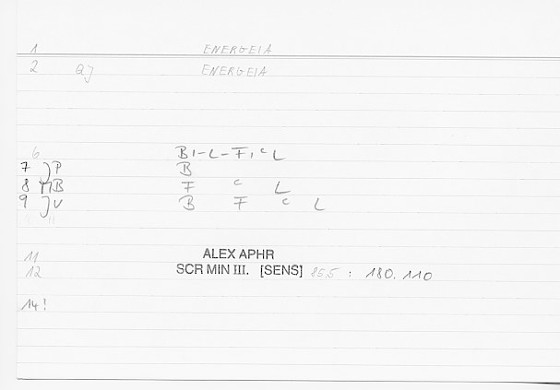 1 ENERGEIA
2 aj ENERGEIA
6 B I - L - F, c L
7 P B
8 B F c L
9 V B F c L
11 ALEX APHR
12 SCR MIN III. [SENS] 155 : 180. 110
14!